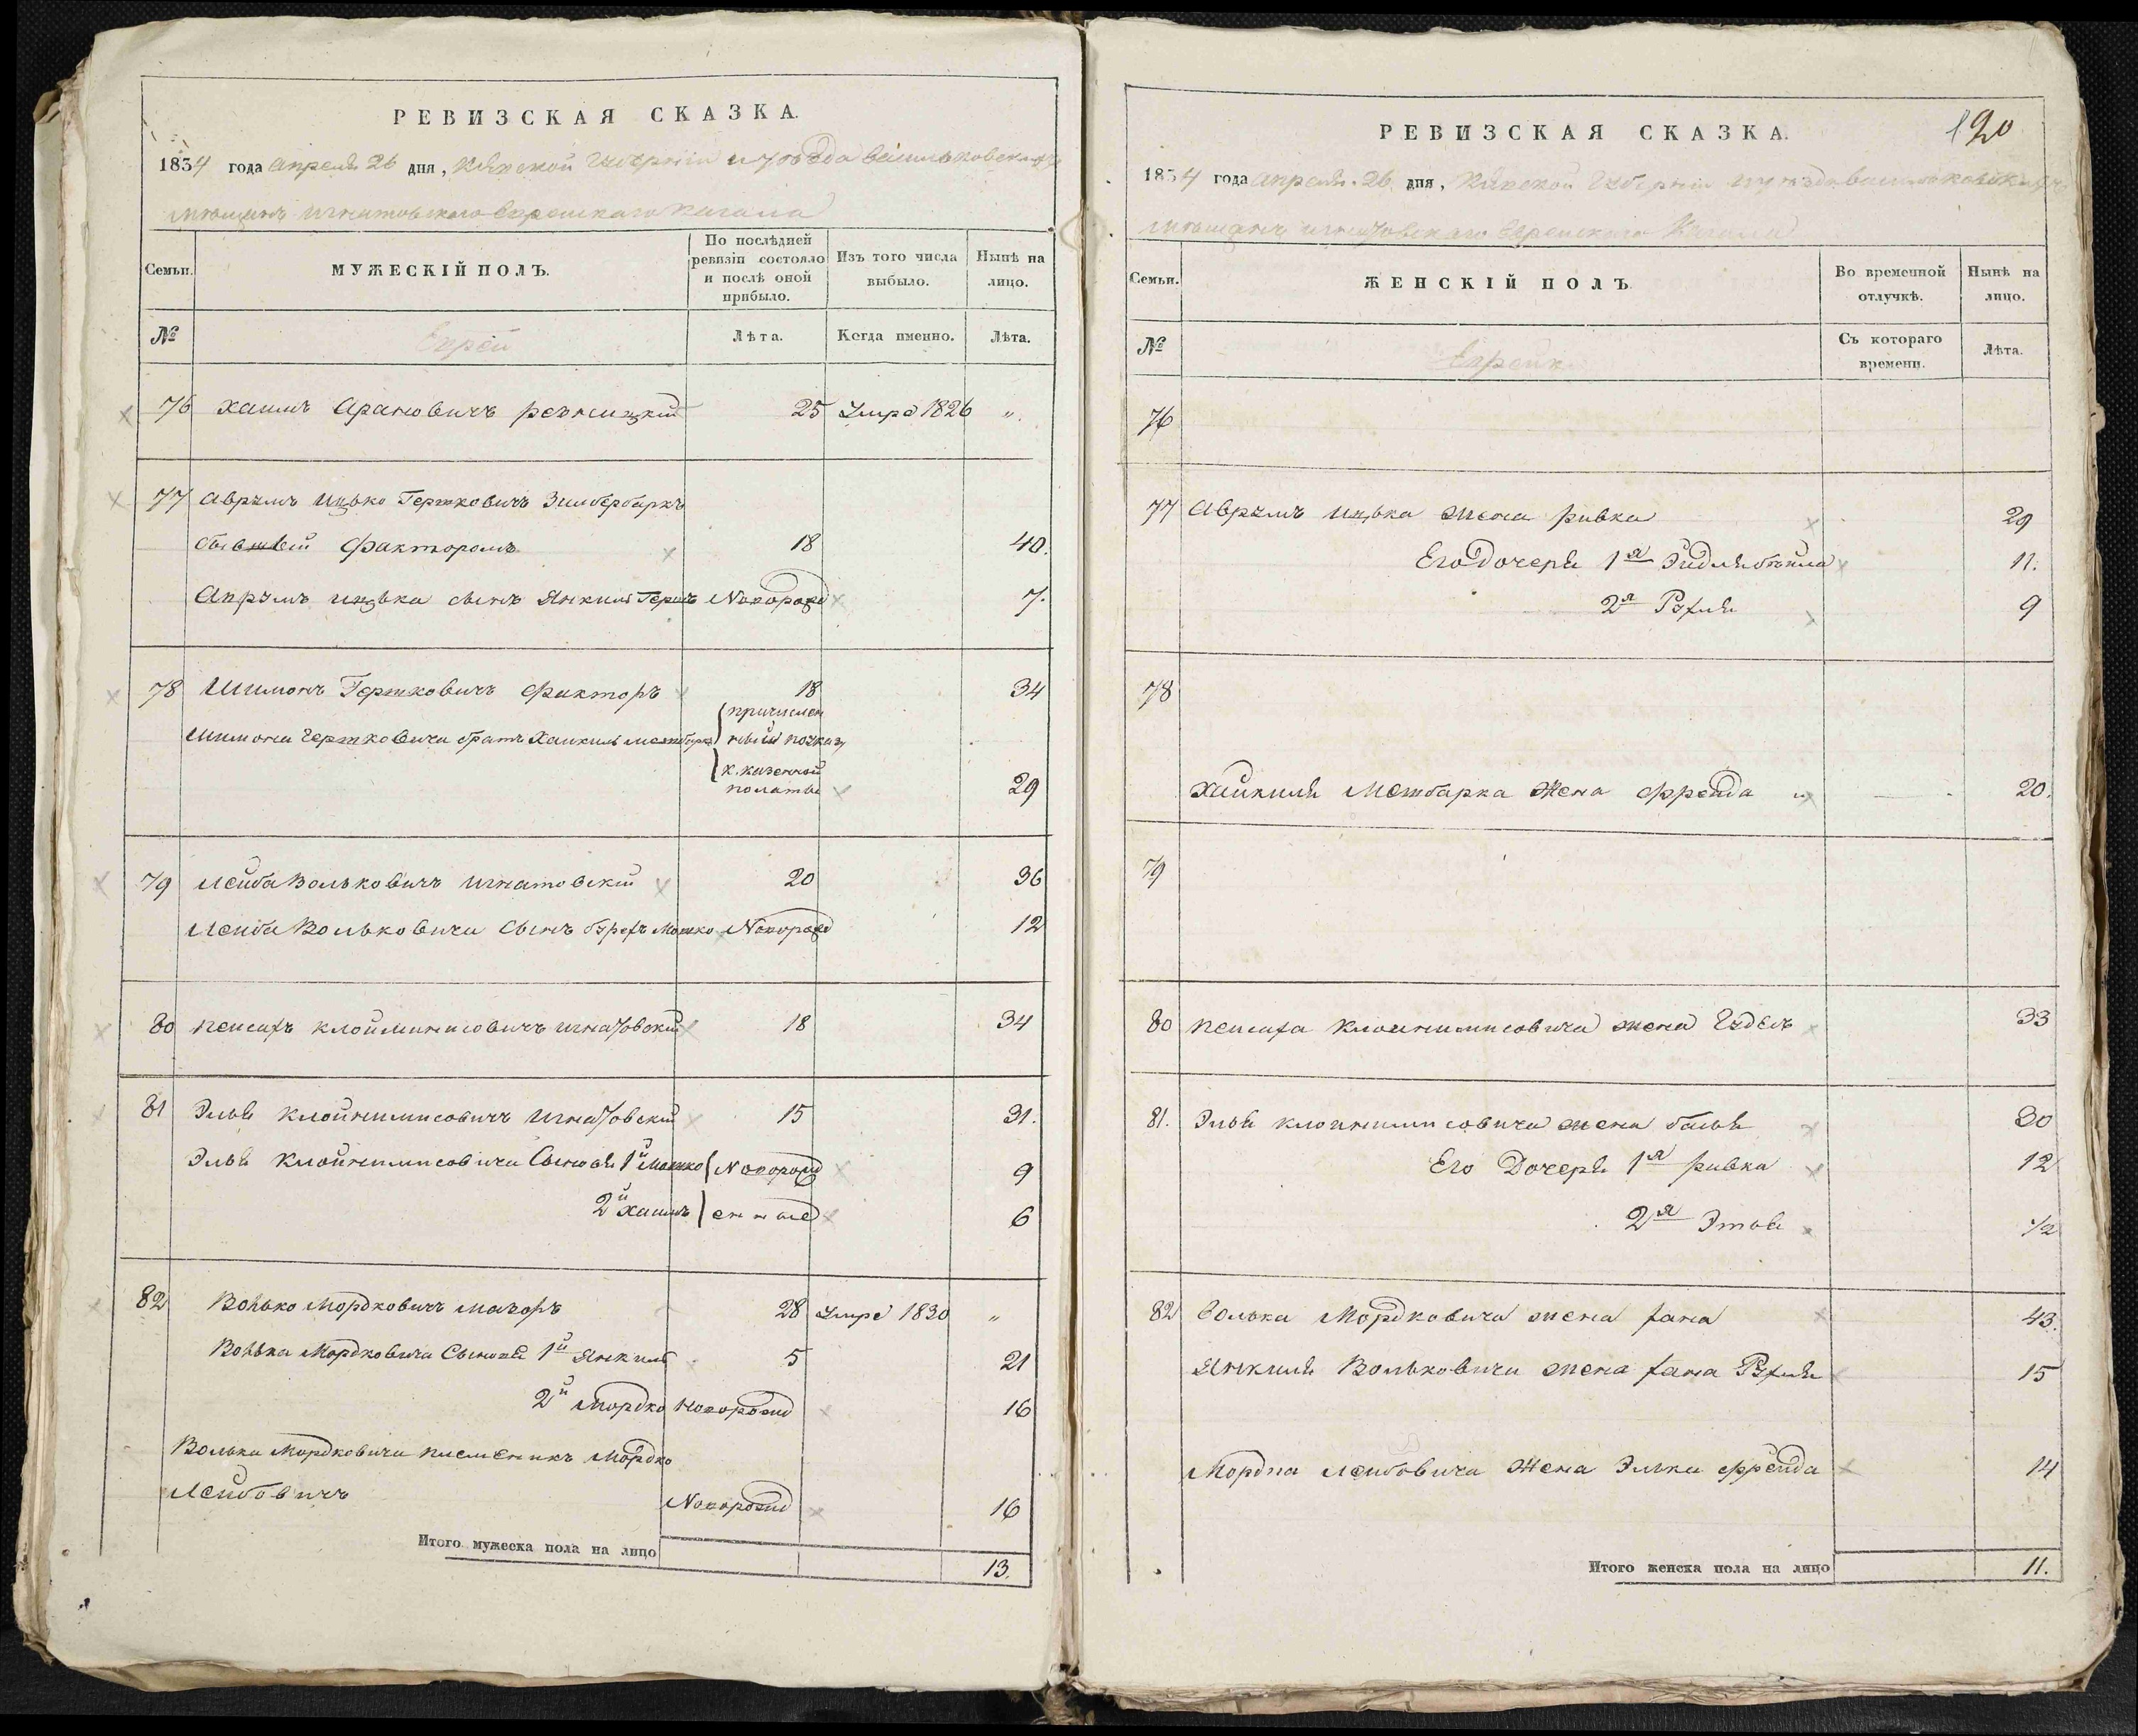 РЕВИЗСКАЯ СКАЗКА.
1834 года Апреля 26 дня, Кіевской Губерніи и уѣзда Васильковскихъ
мѣщанъ Игнатовскаго Еврейскаго Кагала
Семьи.
МУЖЕСКІЙ ПОЛЪ.
По послѣдней ревизіи состояло и послѣ оной прибыло.
Изъ того числа выбыло.
Нынѣ на лицо.
№
Еврей
Лѣта.
Когда именно.
Лѣта.
76 Хаимъ Арановичъ 25 Умре 1826 „
77 Аврумъ Ицько Гершковичъ Зилбербаркъ
бывшей Факторомъ 18 40.
Аврумъ Ицька сынъ Янкиль Гершъ Новорожд 7.
78 Шимонъ Гершковичъ Факторъ 18 34
Шимона Гершковича братъ Хаикиль
причислен
ный по указу
к. казенной
полаты 29
79 Лейба Вольковичъ Игнатовскій 20 36
Лейба Вольковича Сынъ Бурехъ Мошко Новорожд 12
80 Пейсахъ Клойминисовичъ Игнатовскій 18 34
81 Эльь Клойнимисовичъ Игнатовскій 15 31.
Эльь Клойнимисовича Сыновья 1й Мошко Новорожд 9
2й Хаимъ енные 6
82 Волько Мордковичъ Маіоръ 28 Умре 1830 „
Волька Мордковича Сыновья 1й Янкиль 5 21
2й Мордко Новорожд 16
Волька Мордковича племеникъ Мордко
Лейбовичъ Новорожд 16
Итого мужеска пола на лицо 13.
120
РЕВИЗСКАЯ СКАЗКА.
1834 года Апреля 26 дня, Кіевской Губерніи и уѣзда Васильковскихъ
мѣщанъ Игнатовскаго Еврейскаго Кагала
Семьи.
ЖЕНСКІЙ ПОЛЪ.
Во временной отлучкѣ.
Нынѣ на лицо.
№
Еврейк
Съ котораго времени.
Лѣта.
76
77 Аврумъ Ицька жена Ривка 29
Его Дочери 1я Эидля Бейла 11.
2я Рухля 9
78
Хайкиля Метбарка жена Фрейда 20.
79
80 Пейсаха Клоинимисовича жена Гудель 33
81. Эльь Клоинимисовича жена Бася 30
Его Дочери 1я Ривка 12
2я Этля 1/2
82 Волька Мордковича жена Хана 43.
Янкиля Вольковича жена Хана Рухля 15
Мордка Лейбовича жена Элька Фрейда 14
Итого женска пола на лицо 11.